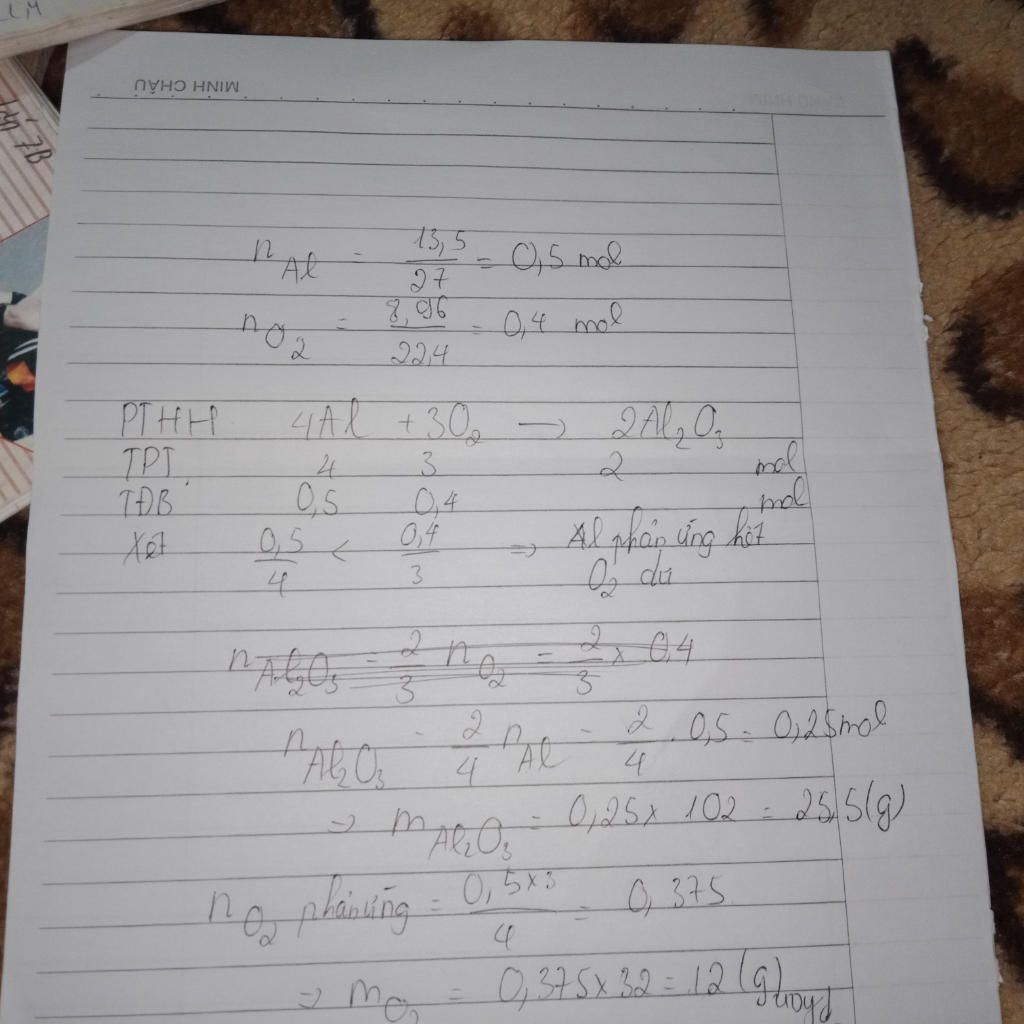 MINH CHÂU
7B
n Al = 13,5/27 = 0,5 mol
n O2 = 8,96/22,4 = 0,4 mol
PTHH 4Al + 3O2 → 2Al2O3
TPT 4 3 2 mol
TĐB 0,5 0,4 mol
Xét 0,5/4 < 0,4/3 ⇒ Al phản ứng hết
O2 dư
n Al2O3 = 2/3 n O2 = 2/3 x 0,4
n Al2O3 = 2/4 n Al = 2/4 . 0,5 = 0,25 mol
⇒ m Al2O3 = 0,25 x 102 = 25,5 (g)
n O2 phản ứng = 0,5 x 3/4 = 0,375
⇒ m O2 = 0,375 x 32 = 12 (g)